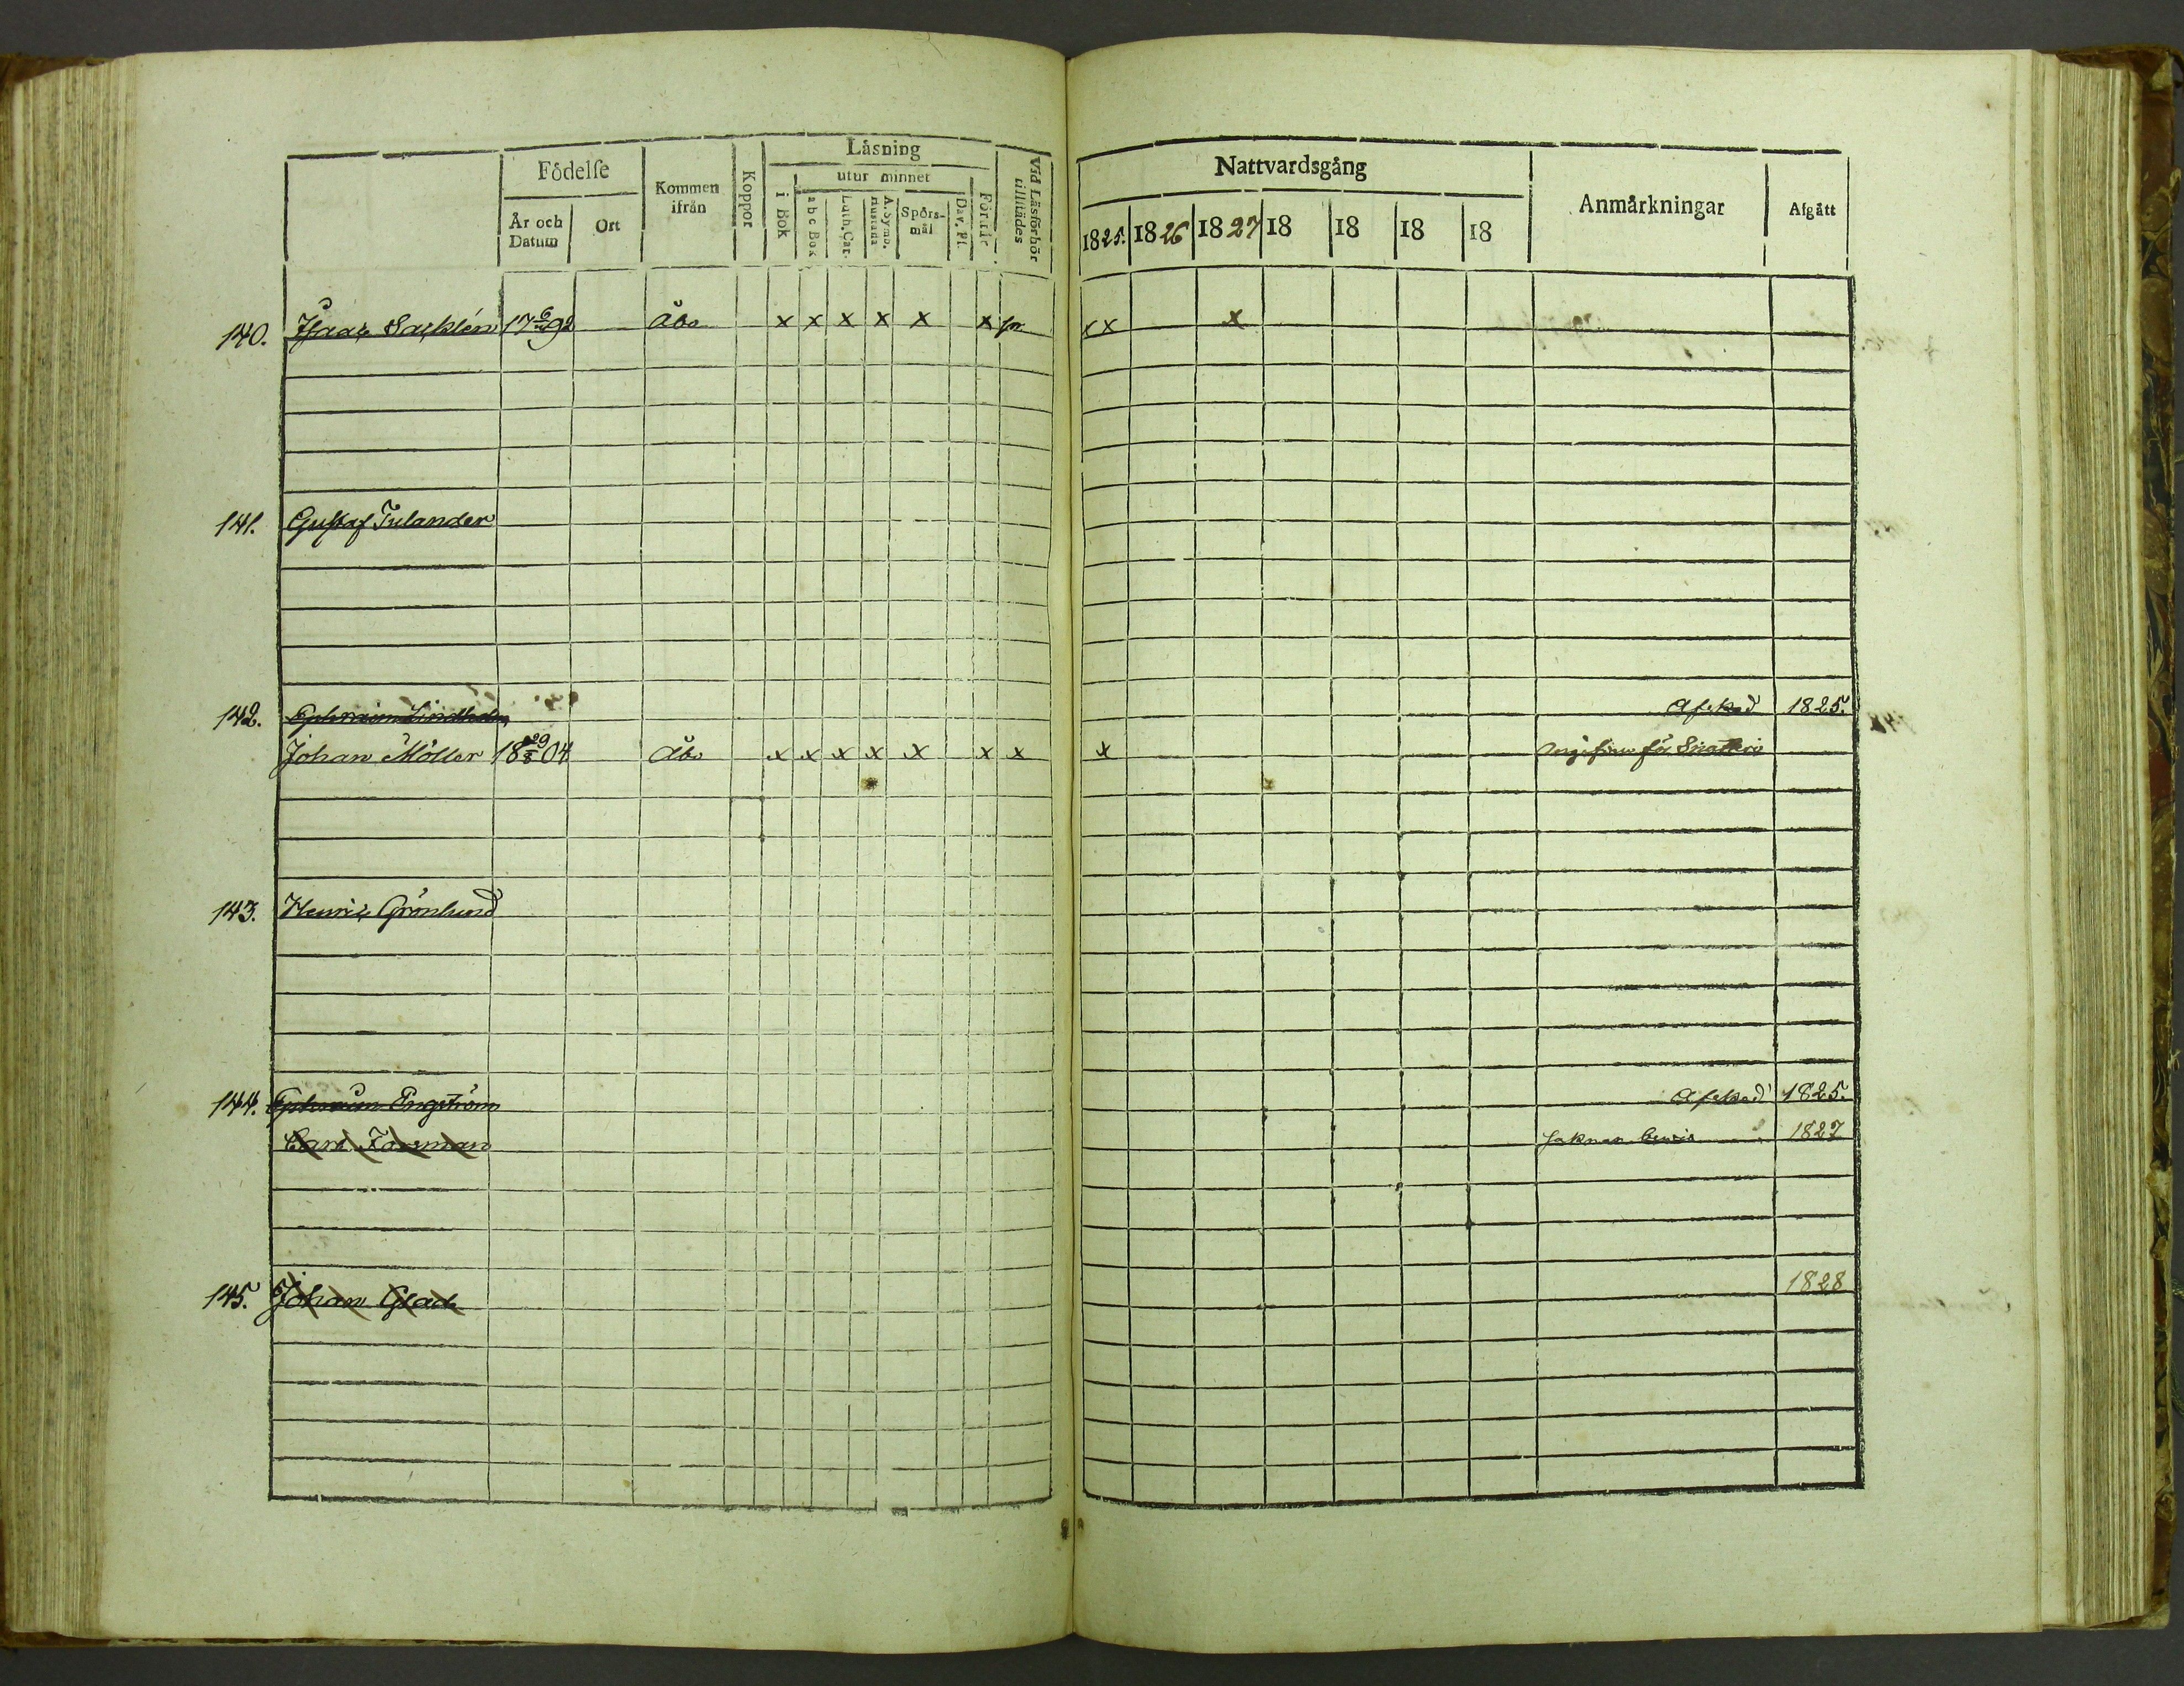 Födelse
Kommen ifrån
Koppor
Läsning
utur minnet
Vid Läsförhör tillstädes
År och Datum
Ort
i Bok
a b c Bok
Luth. Cat.
A. Symb.
Spörs-mål
Dav. Ps.
Förstår
Nattvardsgång
Anmärkningar
Afgått
1825. 1826 1827 18 18 18 18
140. Isaac Sacklén 17 6 92 Åbo x x x x x x x x x
141. Gustaf Julander
142. Ephraim Lindholm Afsked 1825.
Johan Möller 18 29/8 04 Åbo x x x x x x x x för Snatteri
143. Henric Grönlund
144. Ephraim Engström Afsked 1825.
Carl Forsman 1827
145. Johan Glad 1828